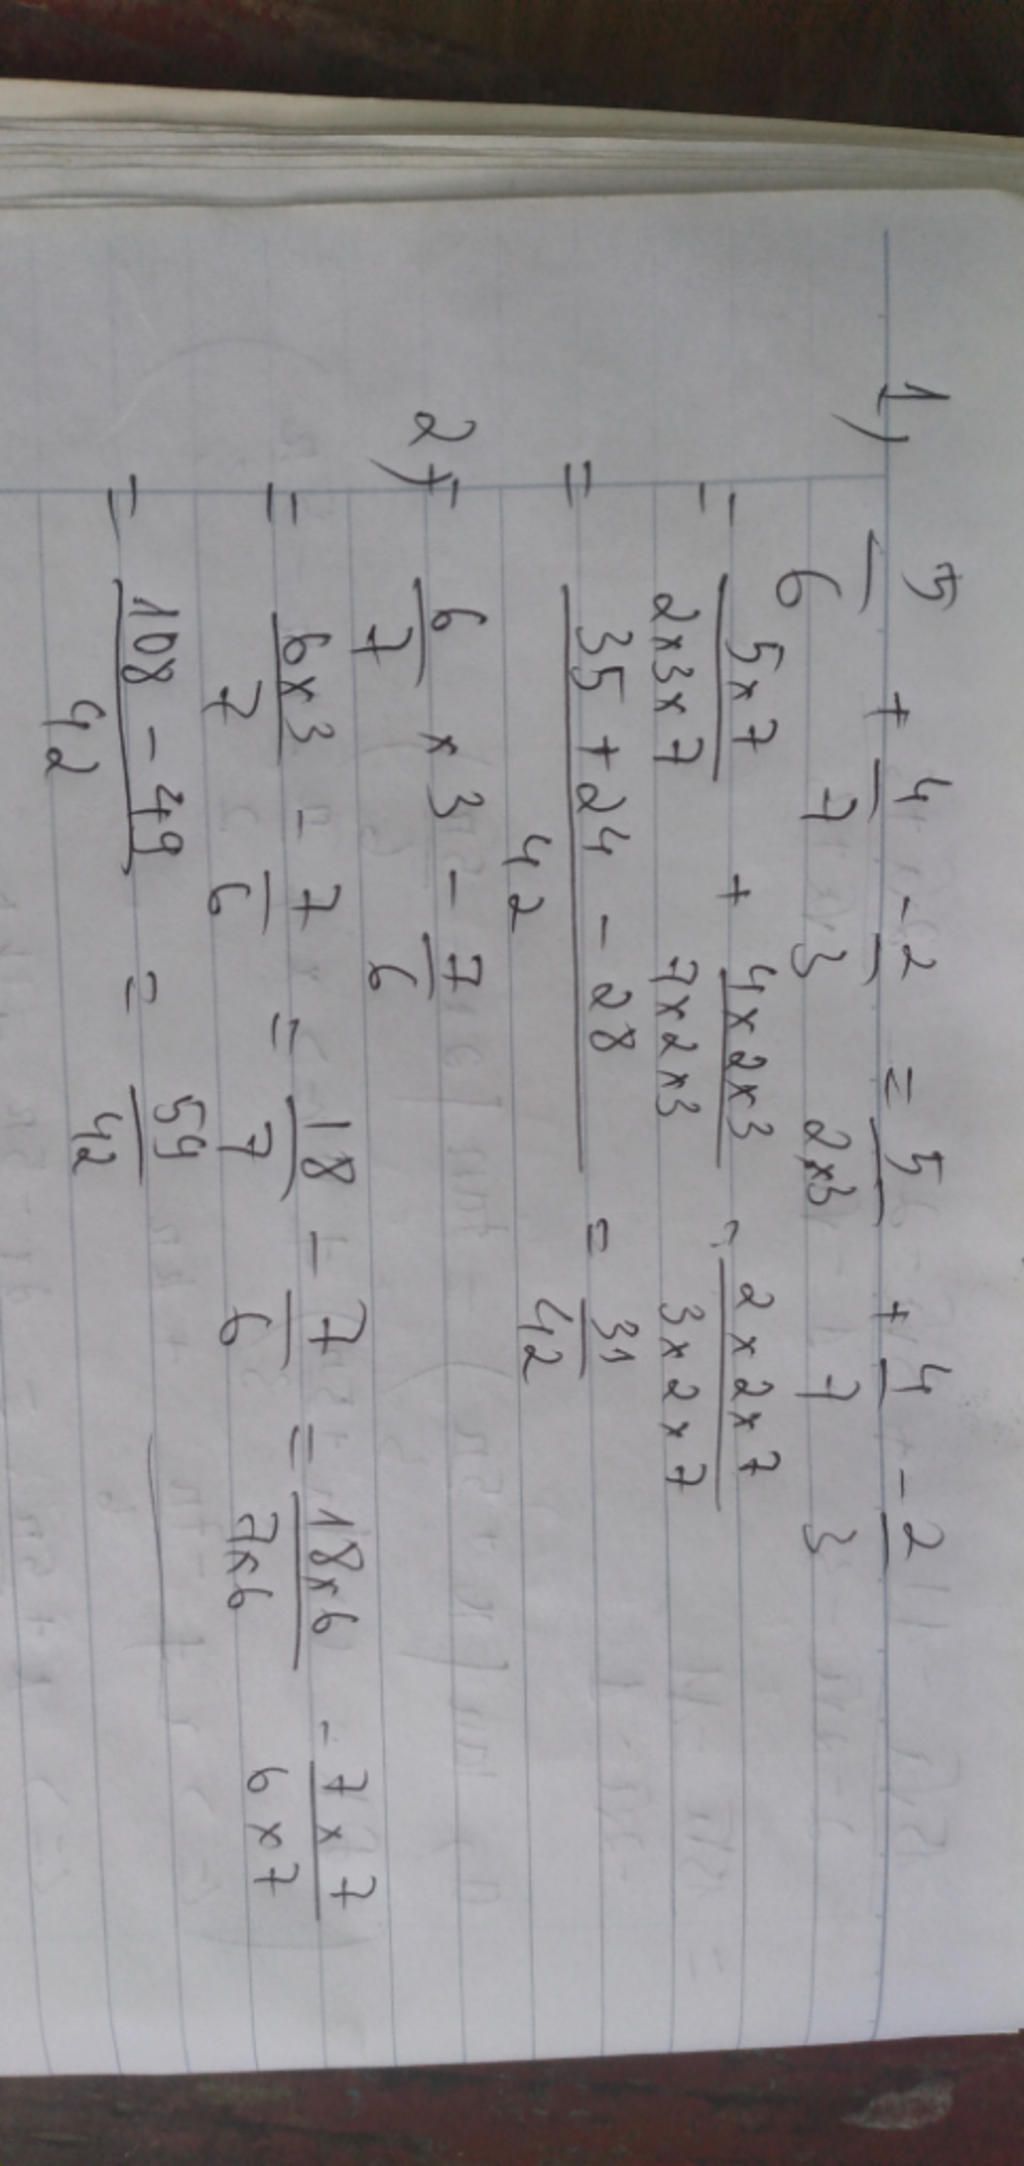 1) 5/6 + 4/7 - 2/3 = 5/2x3 + 4/7 - 2/3
= 5x7/2x3x7 + 4x2x3/7x2x3 - 2x2x7/3x2x7
= 35 + 24 - 28/42 = 31/42
2) 6/7 x 3 - 7/6
= 6x3/7 - 7/6 = 18/7 - 7/6 = 18x6/7x6 - 7x7/6x7
= 108 - 49/42 = 59/42